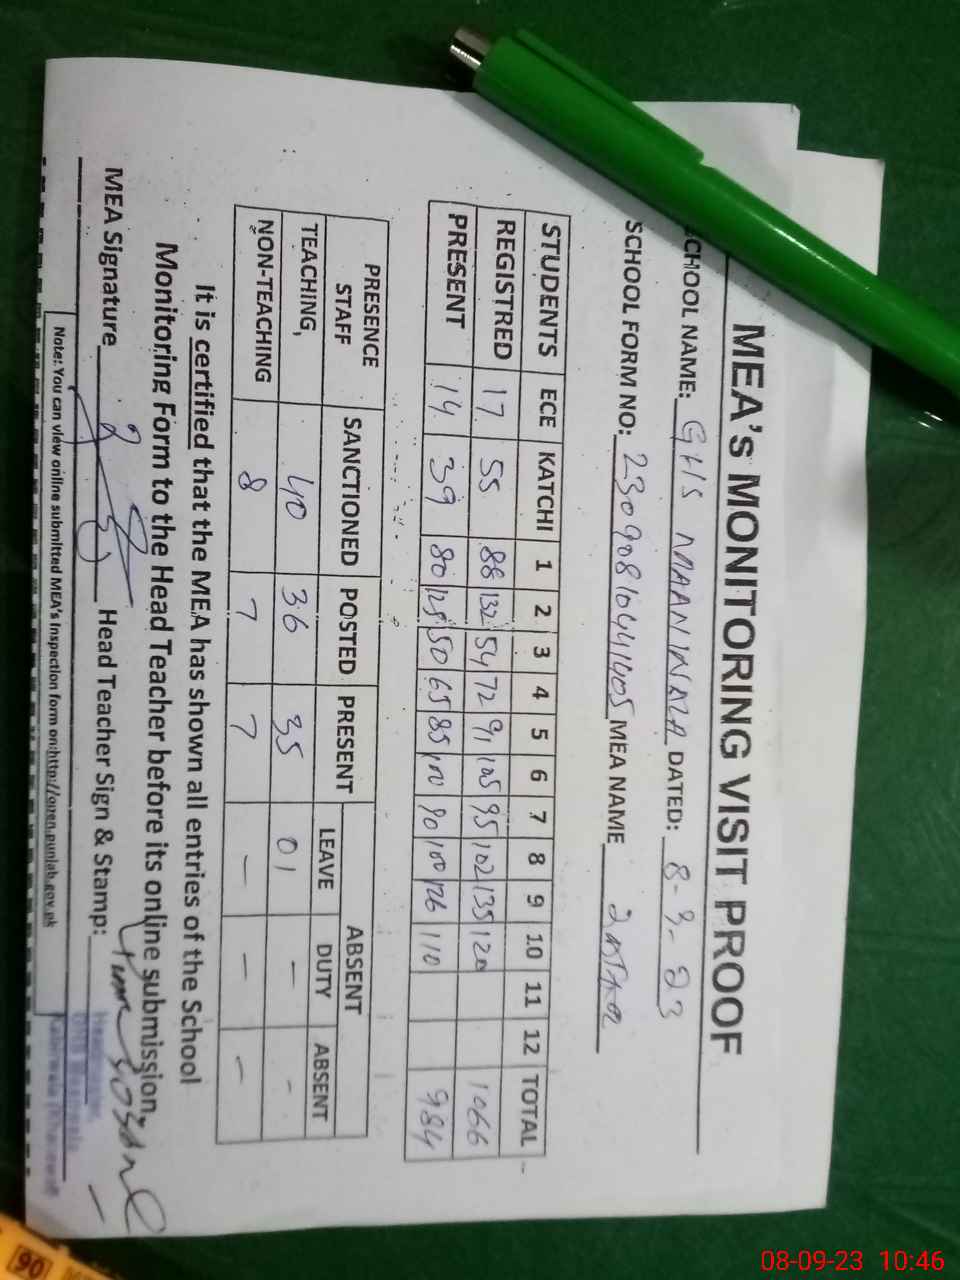 MEA's MONITORING VISIT PROOF
CHOOL NAME: GHS MAANINWALA DATED: 8-9-23
SCHOOL FORM NO: 23090810441405 MEA NAME
STUDENTS ECE KATCHI 1 2 3 4 5 6 7 8 9 10 11 12 TOTAL
REGISTRED 17 55 88 132 54 72 91 105 95 102 135 120 1066
PRESENT 14 39 80 125 50 65 85 100 90 100 126 110 984
PRESENCE STAFF SANCTIONED POSTED PRESENT ABSENT
LEAVE DUTY ABSENT
TEACHING, 40 36 35 01 - -
NON-TEACHING 8 7 7 - - -
It is certified that the MEA has shown all entries of the School
Monitoring Form to the Head Teacher before its online submission,
MEA Signature Head Teacher Sign & Stamp:
Note: You can view online submitted MEA's Inspection form on:http://open.punjab.gov.pk
90
08-09-23 10:46